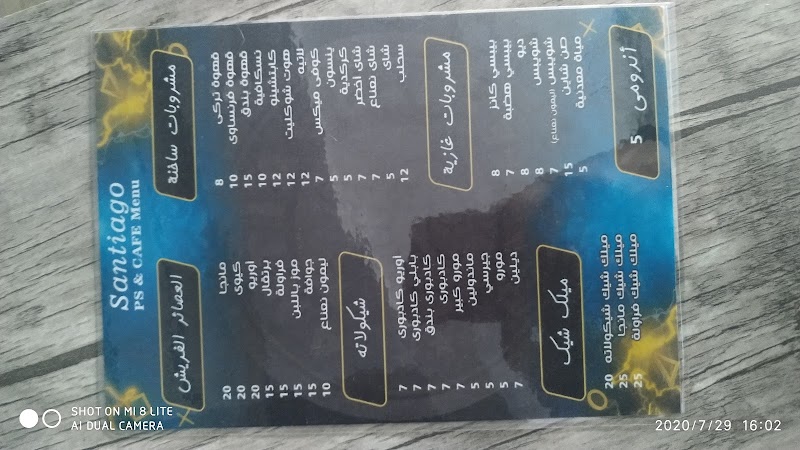 Santiago
PS & CAFE Menu
مشروبات ساخنة
قهوة تركى 8
قهوة فرنساوى 10
قهوة بندق 15
نسكافية 10
كابتشينو 12
هوت شوكليت 12
لاتيه 12
كوفى ميكس 7
ينسون 5
كركدية 5
شاى اخضر 7
شاى نعناع 7
شاى 5
سحلب 12
مشروبات غازية
بيبسى كانز 8
بيبسى هضبة 7
ديو 8
شويبس 8
شويبس (ليمون نعناع) 7
صن شاين 15
مياة معدنية 5
أندومى 5
العصائر الفريش
مانجا 20
كيوى 20
اوريو 20
برتقال 15
فراولة 15
موز باللبن 15
جوافة 15
ليمون نعناع 10
شيكولاته
اوريو كادبورى 7
بابلي كادبورى 7
كادبورى بندق 7
كادبورى 7
مورو كبير 7
ماندولين 5
جيرسي 5
مورو 5
ديلين 7
ميلك شيك
ميلك شيك شيكولاته 20
ميلك شيك مانجا 25
ميلك شيك فراولة 25
SHOT ON MI 8 LITE
AI DUAL CAMERA
2020/7/29 16:02